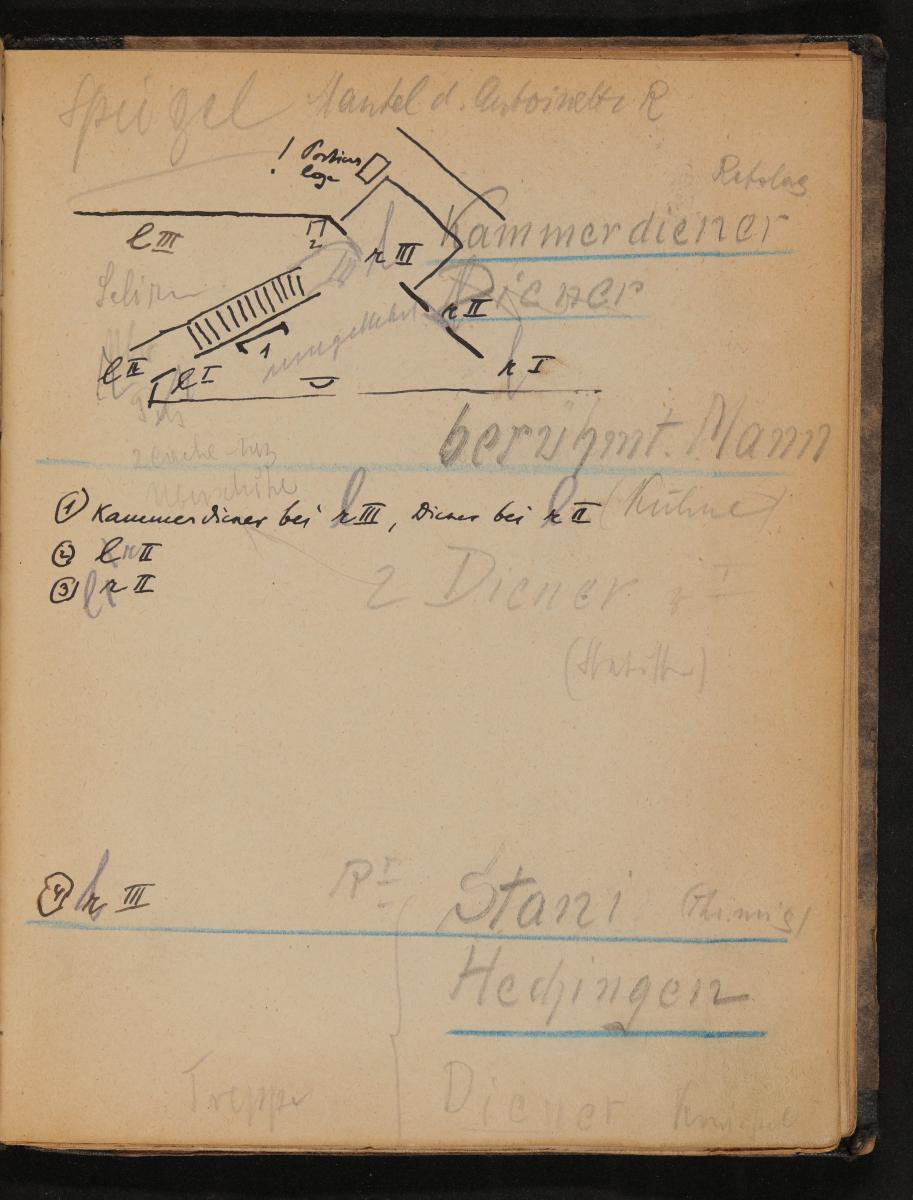 Spiegel Mantel d. Antoinette R
! Portiers
loge
Kammerdiener
l III
2
r III
Diener
r II
umgekehrt
1
l II
l I
r I
berühmt. Mann
① Kammerdiener bei r III, Diener bei r II (Kühne)
② l II
③ r II
2 Diener r I
(Statisten)
④ r III
R I
Stani (Thimig)
Hechingen
Treppe
Diener